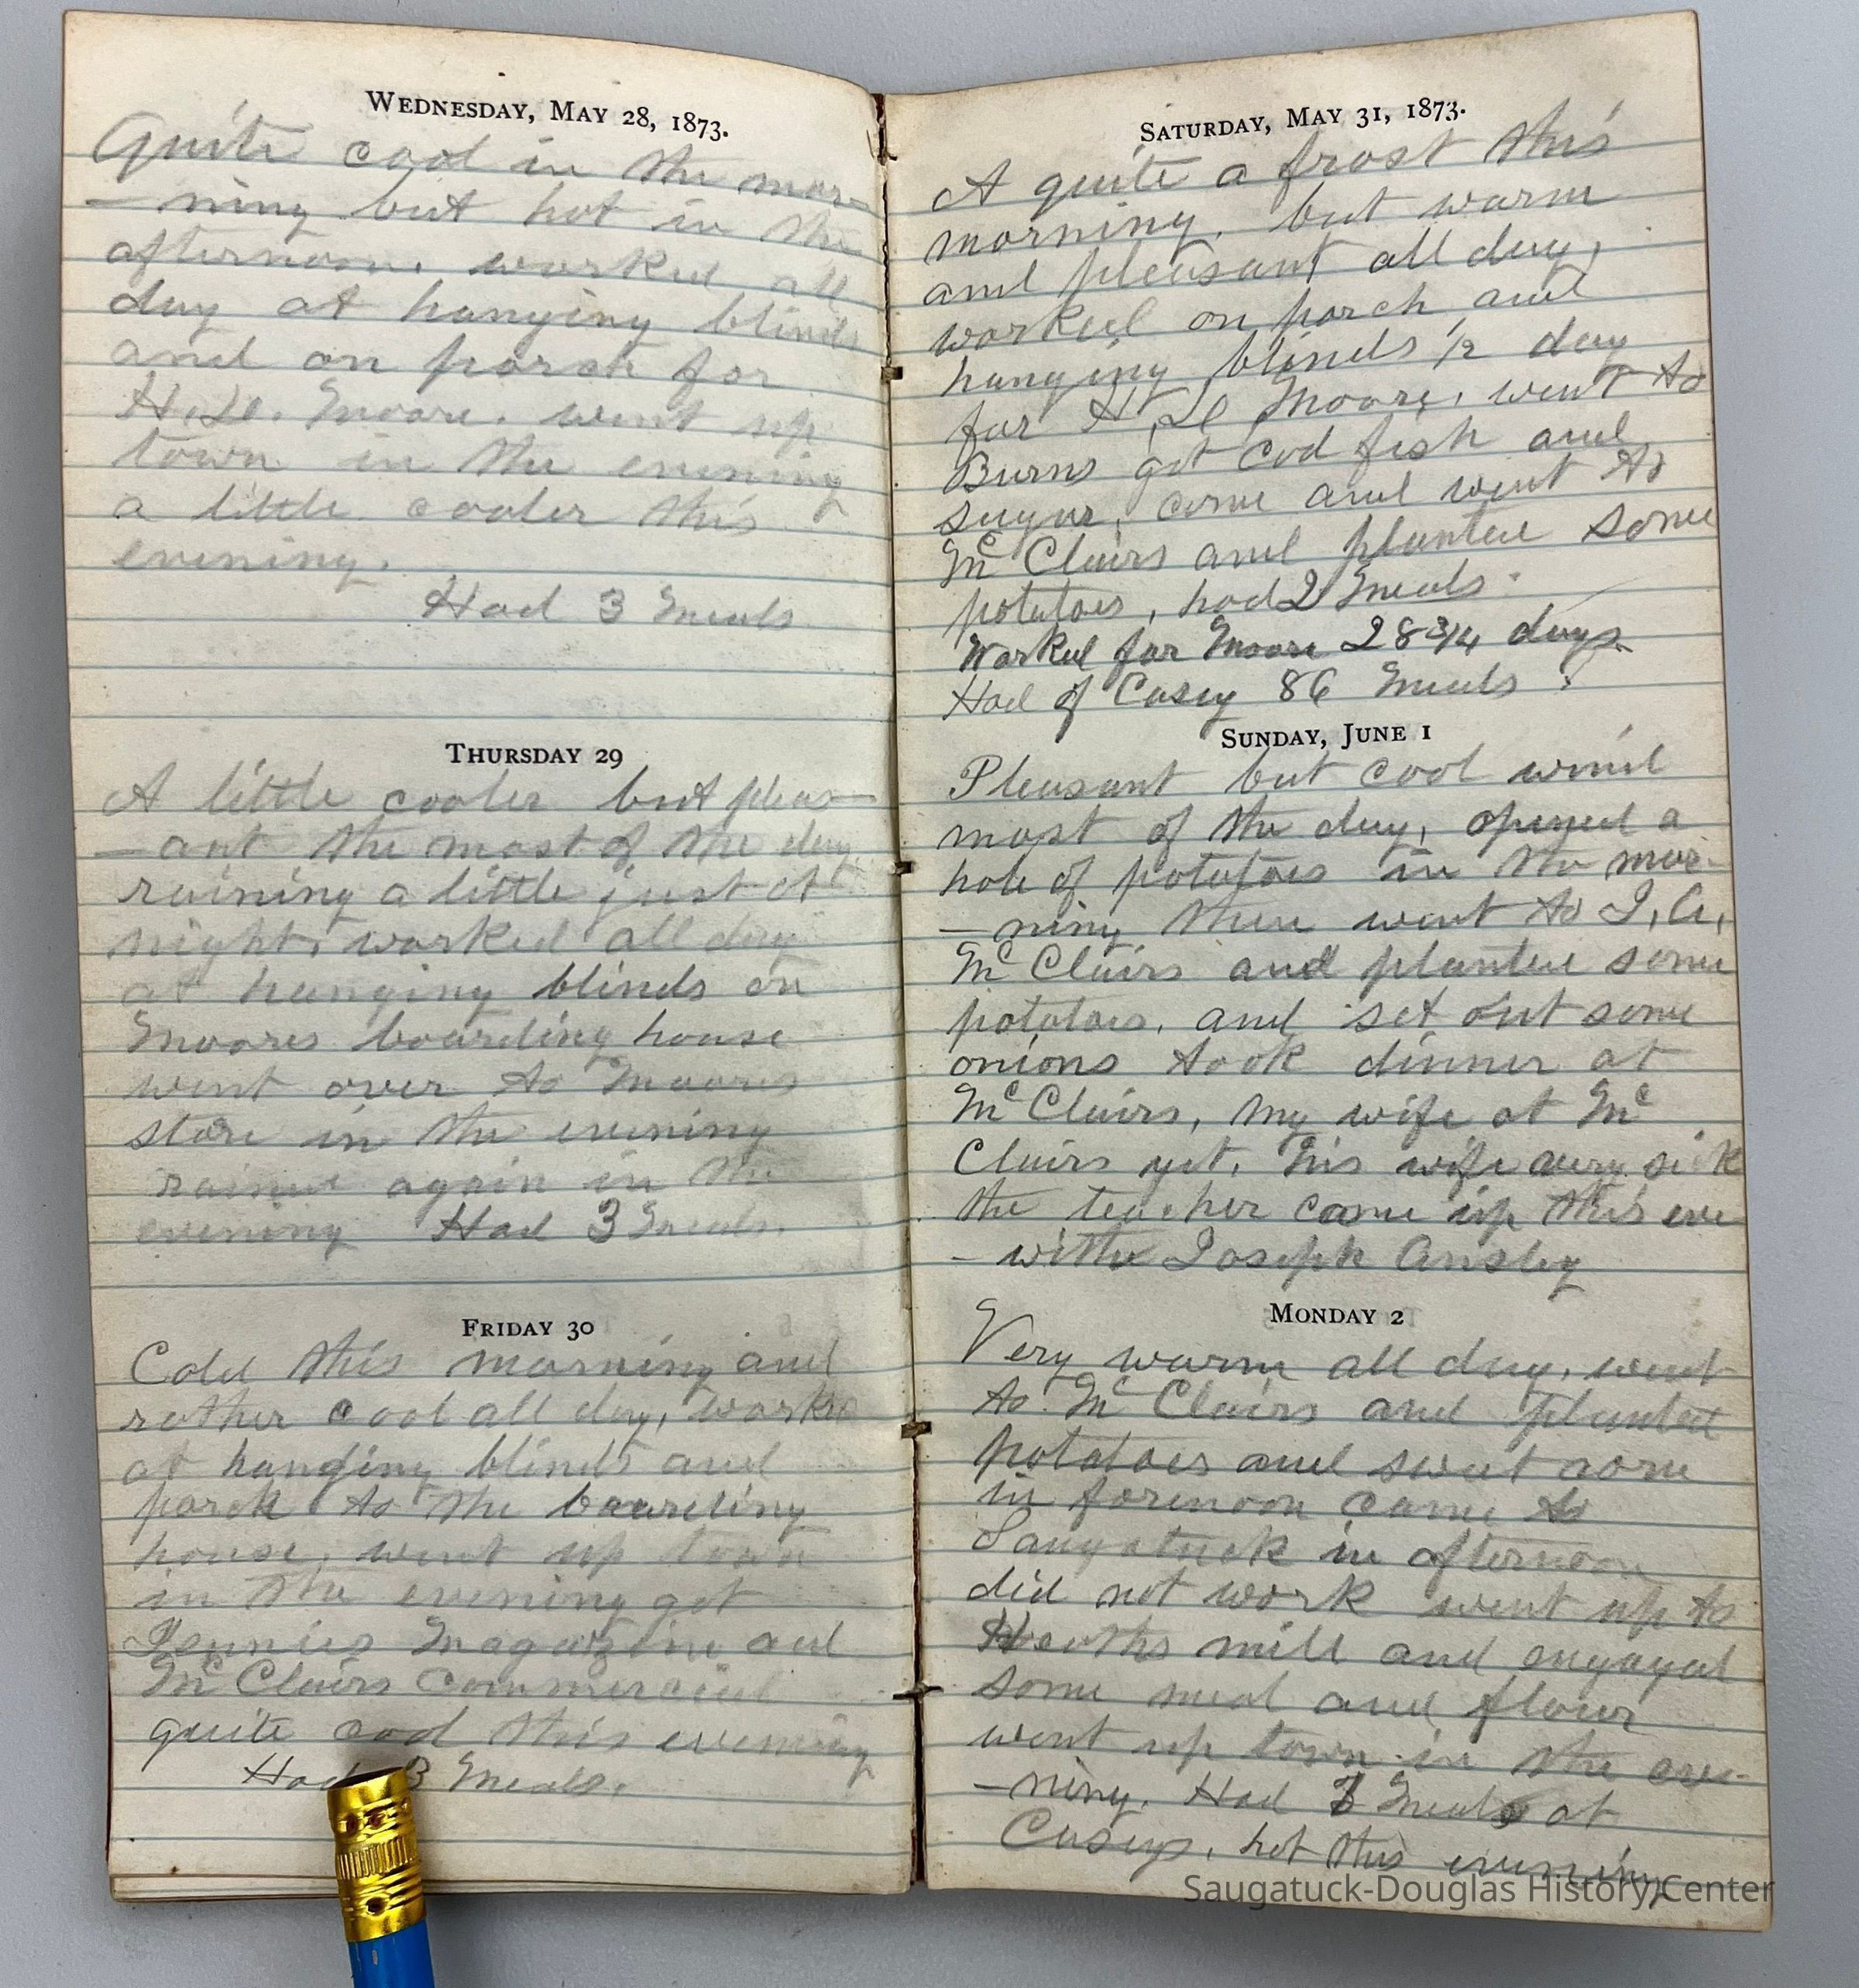 WEDNESDAY, MAY 28, 1873.
Quite cool in the mor-
-ning but hot in the
afternoon. worked all
day at hanging blinds
and on porch for
H. D. Moore. went up
town in the evening
a little cooler this
evening.
Had 3 Meals
THURSDAY 29
A little cooler but pleas-
-ant the most of the day
raining a little just at
night, worked all day
at hanging blinds on
Moores boarding house
went over to Moores
store in the evening
rained again in the
evening Had 3 Meals.
FRIDAY 30
Cold this morning and
rather cool all day, worked
at hanging blinds and
porch to the boarding
house, went up town
in the evening got
Jennies Magazine and
McClairs Commercial
quite cool this evening
Had 3 Meals.
SATURDAY, MAY 31, 1873.
A quite a frost this
morning, but warm
and pleasant all day,
worked on porch and
hanging blinds 1/2 day
for H. D Moore, went to
Burns got Cod fish and
sugar, come and went to
McClairs and planted some
potatoes, had 2 Meals.
Worked for Moore 28 3/4 days.
Had of Casey 86 Meals
SUNDAY, JUNE 1
Pleasant but cool wind
most of the day, opened a
hole of potatoes in the mor-
-ning then went to I, A,
McClairs and planted some
potatoes, and set out some
onions took dinner at
McClairs, My wife at Mc
Clairs yet. his wife very sick
the teacher come up this eve
- with Joseph Ansley
MONDAY 2
Very warm all day, went
to McClairs and planted
potatoes and sweet corn
in forenoon came to
Saugatuck in afternoon
did not work went up to
Heaths mill and engaged
some meal and flour
went up town in the eve-
-ning. Had 3 Meals at
Caseys, hot this evening
Saugatuck-Douglas History Center